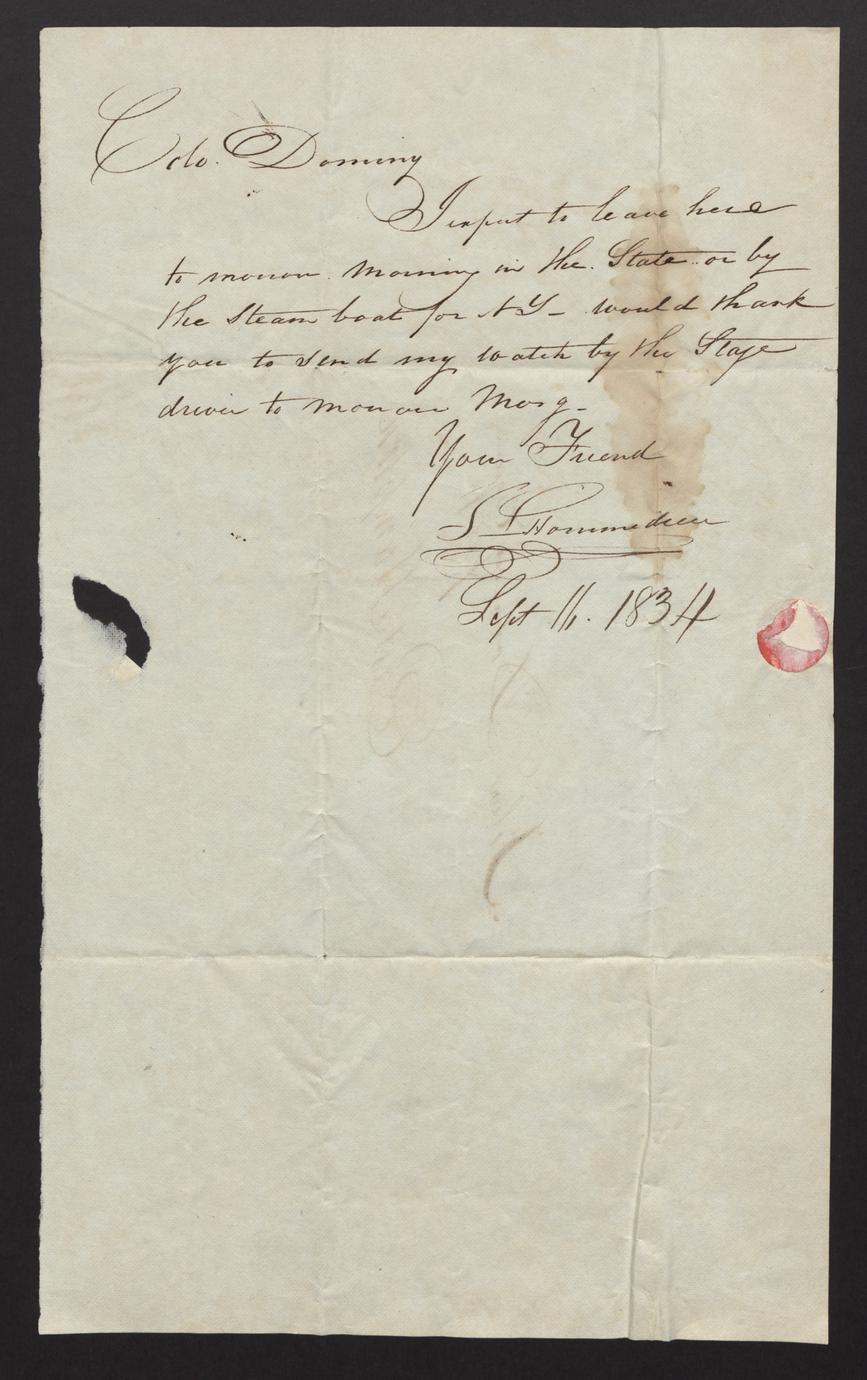 Colo. Dominy
I expect to leave here
to morrow morning in the State or by
the Steam boat for NY- would thank
you to send my watch by the Stage
driver to morrow Morg-
Your Friend
S L'Hommedieu
Sept 11. 1834